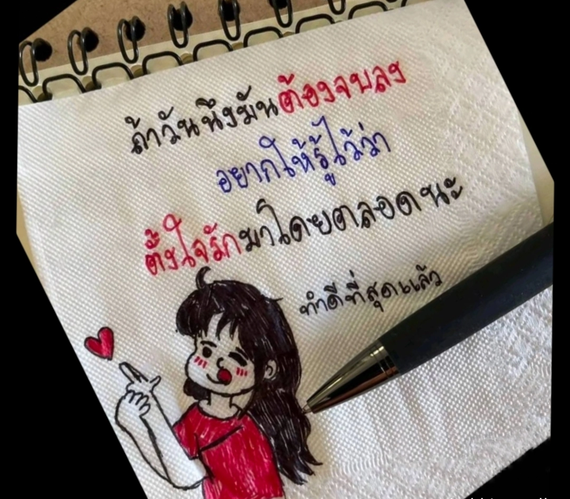 ถ้าวันนึงมันต้องจบลง
อยากให้รู้ไว้ว่า
ตั้งใจรักมาโดยตลอดนะ
ทำดีที่สุดแล้ว